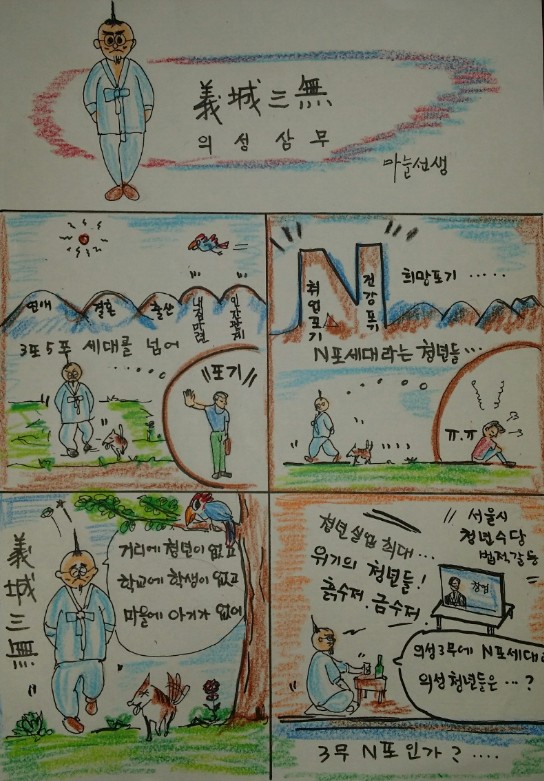 義城三無
의성삼무
마늘선생
연애
결혼
출산
내집마련
인간관계
3포5포 세대를 넘어
....
"포기"
취업포기
건강포기
희망포기 ......
N포세대라는 청년들...
ㅠ.ㅠ
義城三無
거리에 청년이 없고
학교에 학생이 없고
마을에 아기가 없어
청년실업 최대...
위기의 청년들!
흙수저. 금수저.
서울시
청년수당
법적갈등
의성3무에 N포세대라
의성청년들은...?
3무 N포인가? ....